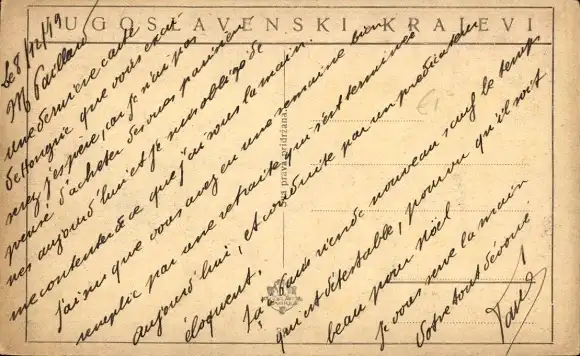 JUGOSLAVENSKI KRAJEVI
Sva prava pridržana.
Le 8/12/19
Mr Paillard
une dernière carte
de Hongrie que vous excu
serez j'espère, car je n'ai pas
pensé d'acheter des vues parisien
nes aujourd'hui et je suis obligé de
me contenter de ce que j'ai sous la main.
j'ai su que vous avez eu une semaine bien
remplie par une retraite qui s'est terminée
aujourd'hui, et conduite par un prédicateur
éloquent.
Là dans rien de nouveau sauf le temps
qui est détestable, pourvu qu'il soit
beau pour Noël
Je vous serre la main
Votre tout dévoué